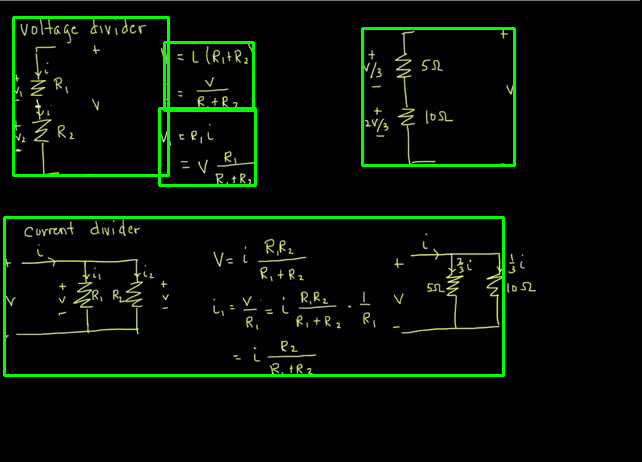 Voltage divider
+
i
+
V₁
-
R₁
i
V
+
V₂
-
R₂
V = i (R₁+R₂)
i = V / (R₁+R₂)
V₁ = R₁ i
= V R₁ / (R₁+R₂)
+
V/3
-
5Ω
+
2V/3
-
10Ω
+
V
Current divider
i
+
V
-
i₁
+
V
-
R₁
R₂
i₂
+
V
-
V = i R₁R₂ / (R₁+R₂)
i₁ = V/R₁ = i R₁R₂ / (R₁+R₂) · 1/R₁
= i R₂ / (R₁+R₂)
i
+
V
-
2/3 i
5Ω
1/3 i
10Ω